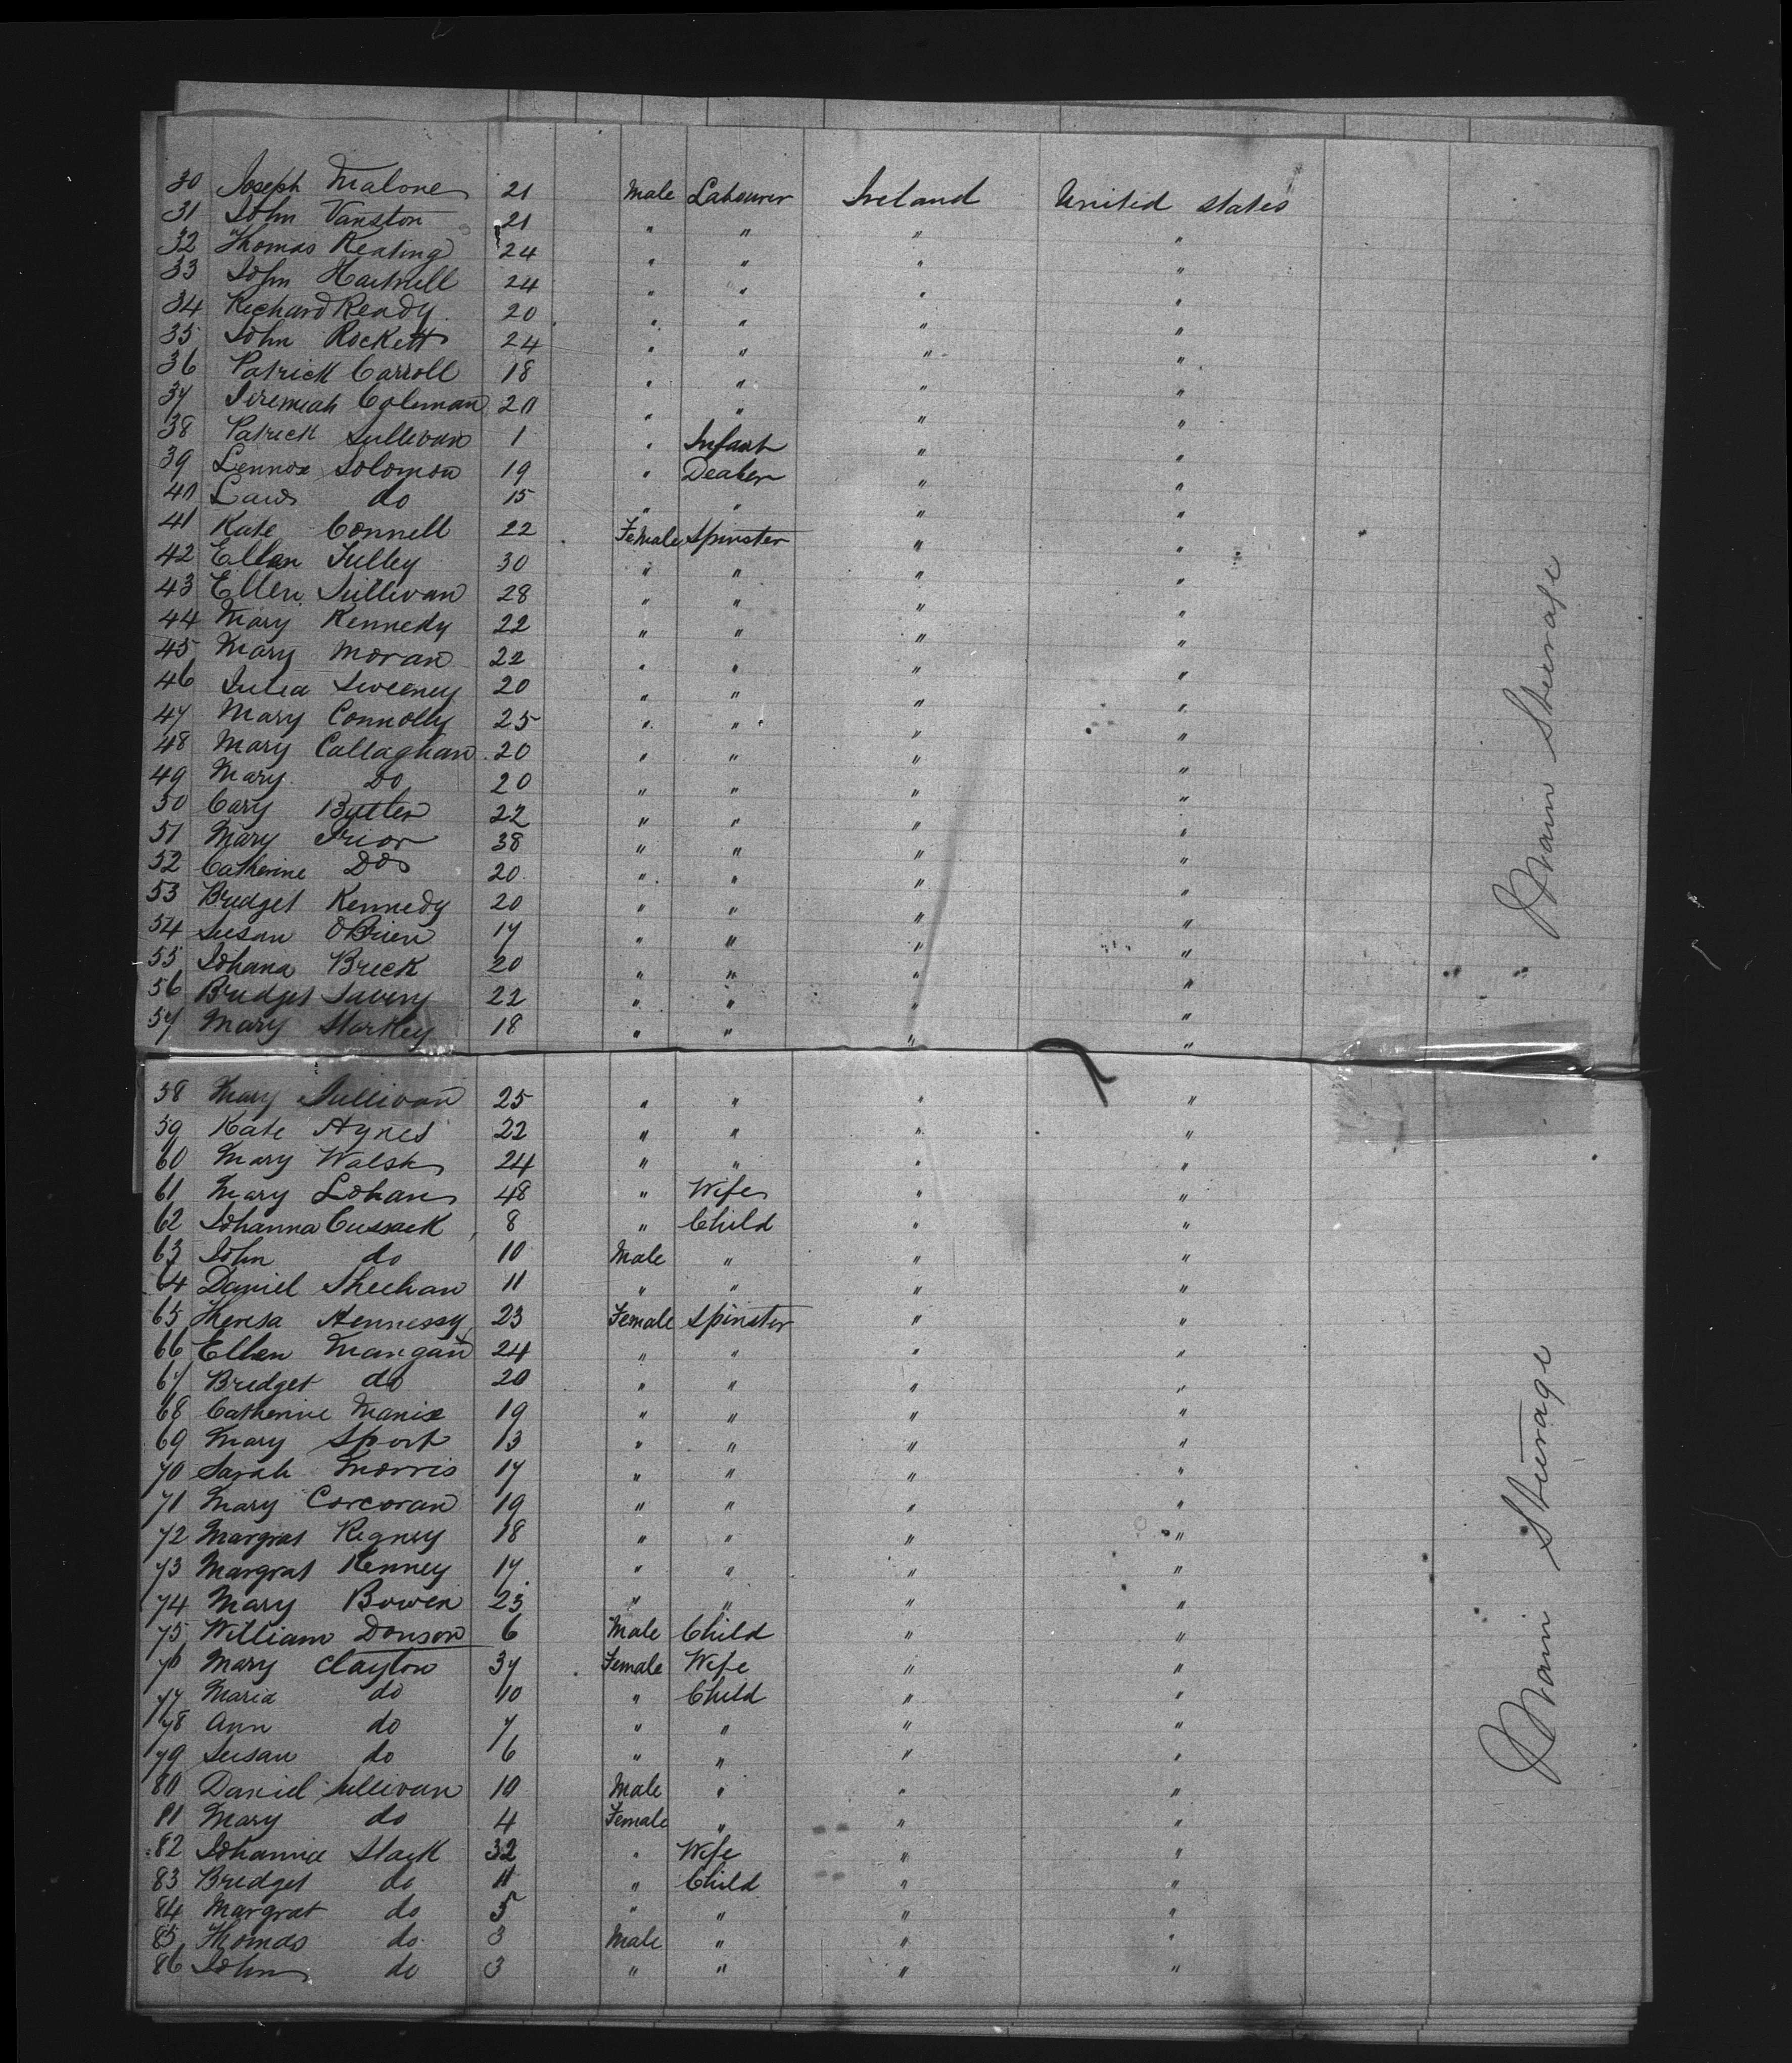 30 Joseph Malone 21 Male Labourer Ireland United States
31 John Vanston 21 " " " "
32 Thomas Keating 24 " " " "
33 John Hartnell 24 " " " "
34 Richard Ready 20 " " " "
35 John Rockett 24 " " " "
36 Patrick Carroll 18 " " " "
37 Jeremiah Coleman 20 " " " "
38 Patrick Sullivan 1 " Infant " "
39 Lennox Solomon 19 " Dealer " "
40 do 15 " " " "
41 Kate Connell 22 Female Spinster " "
42 Ellen 30 " " " "
43 Ellen Sullivan 28 " " " "
44 Mary Kennedy 22 " " " "
45 Mary Moran 22 " " " "
46 Julia Sweeney 20 " " " "
47 Mary Connolly 25 " " " "
48 Mary Callaghan 20 " " " "
49 Mary Do 20 " " " "
50 Cary Butler 22 " " " "
51 Mary Prior 38 " " " "
52 Catherine Do 20 " " " "
53 Bridget Kennedy 20 " " " "
54 Susan OBrien 17 " " " "
55 Johana Brick 20 " " " "
56 Bridget 22 " " " "
57 Mary Starkey 18 " " " "
58 Mary Sullivan 25 " " " "
59 Kate Hynes 22 " " " "
60 Mary Walsh 24 " " " "
61 Mary Lohan 48 " Wife " "
62 Johanna Cussack 8 " Child " "
63 John do 10 Male " " "
64 Daniel Sheehan 11 " " " "
65 Theresa Hennessy 23 Female Spinster " "
66 Ellen Mangan 24 " " " "
67 Bridget do 20 " " " "
68 Catherine Manix 19 " " " "
69 Mary Sport 13 " " " "
70 Sarah Morris 17 " " " "
71 Mary Corcoran 19 " " " "
72 Margrat Regney 18 " " " "
73 Margrat Kenney 17 " " " "
74 Mary Bowen 23 " " " "
75 William Donson 6 Male Child " "
76 Mary Clayton 37 Female Wife " "
77 Maria do 10 " Child " "
78 Ann do 7 " " " "
79 Susan do 6 " " " "
80 Daniel Sullivan 10 Male " " "
81 Mary do 4 Female " " "
82 Johanna Slack 32 " Wife " "
83 Bridget do 11 " Child " "
84 Margrat do 5 " " " "
85 Thomas do 3 Male " " "
86 John do 3 " " " "
Main Steerage
Main Steerage